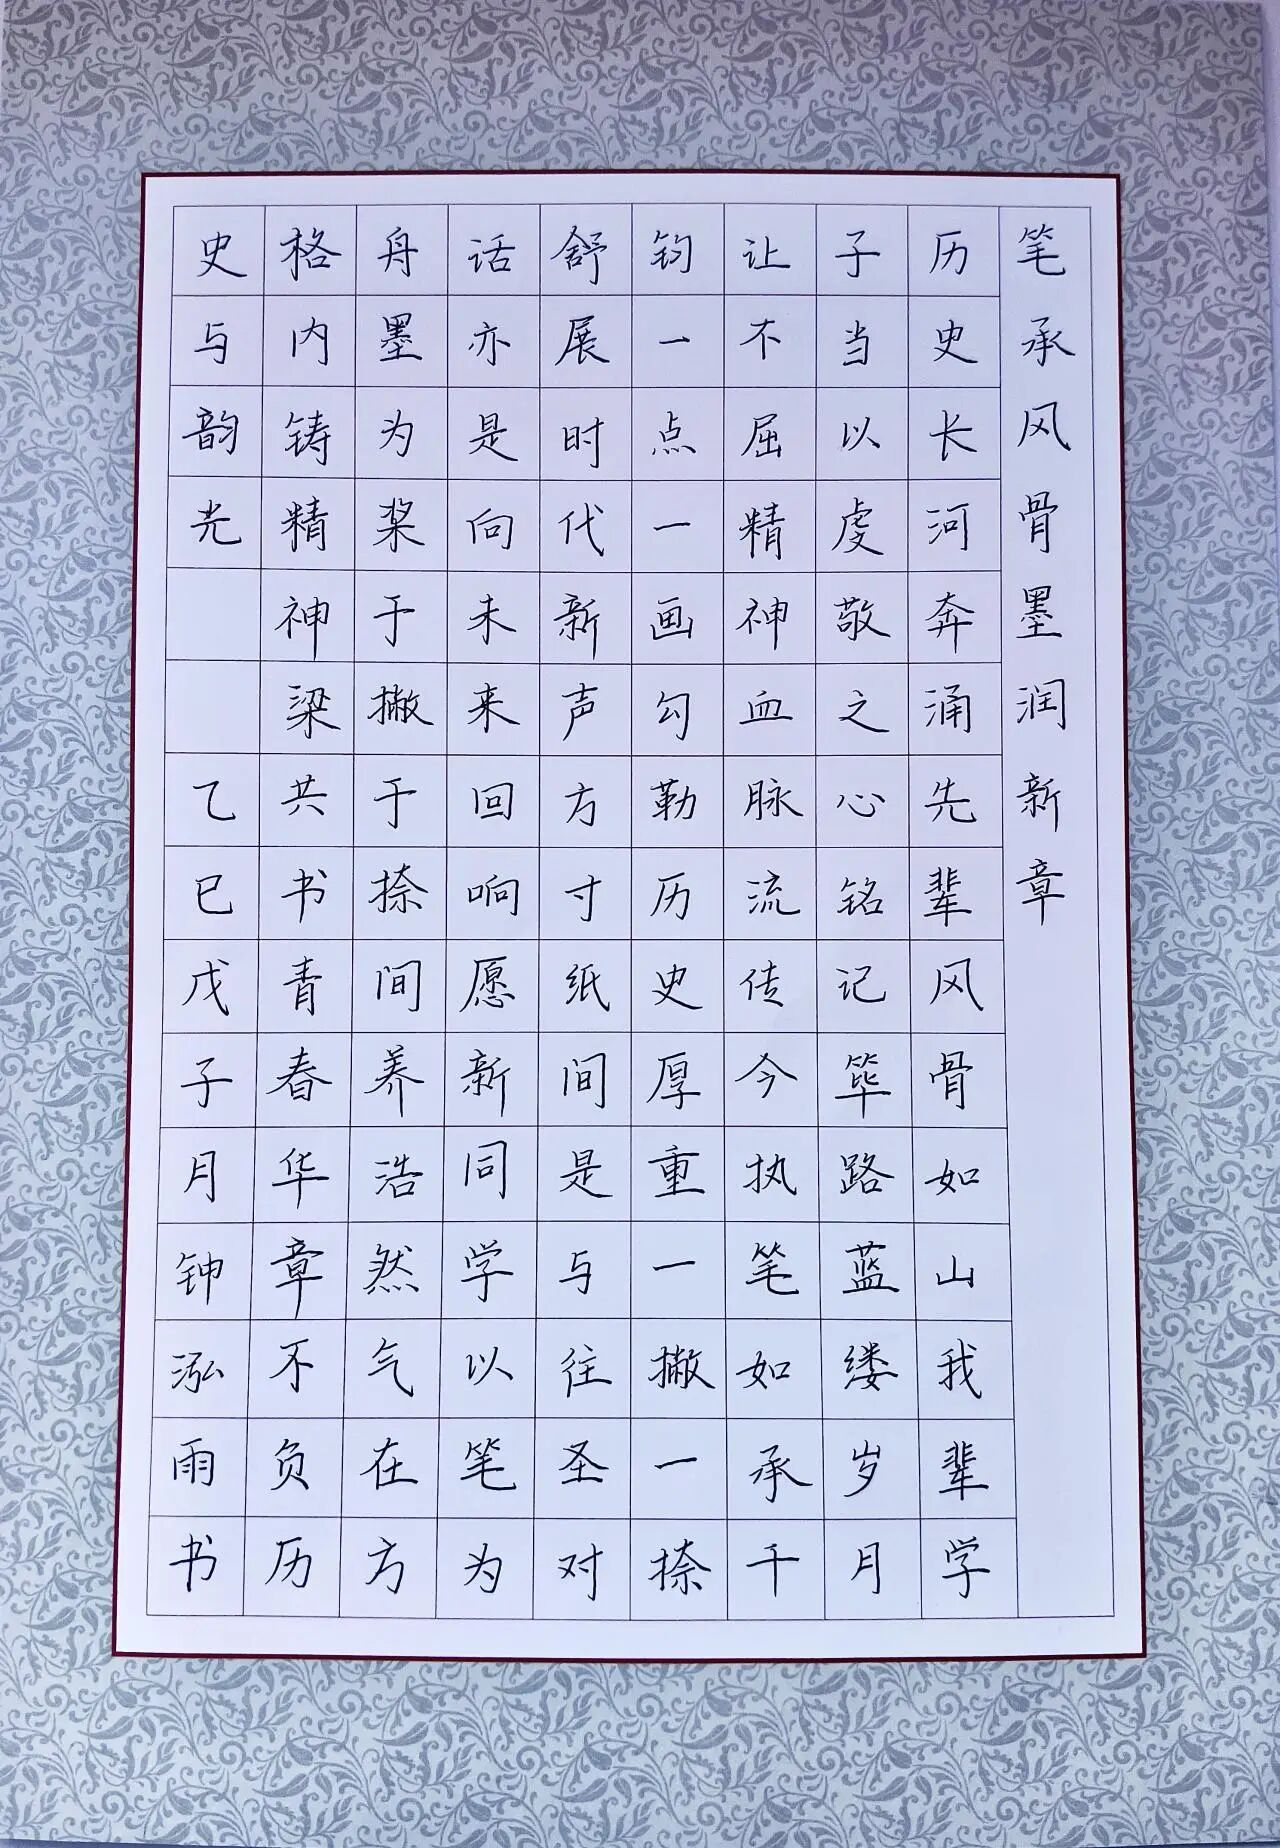 笔承风骨墨润新章
历史长河奔涌先辈风骨如山我辈学
子当以虔敬之心铭记筚路蓝缕岁月
让不屈精神血脉流传今执笔如承千
钧一点一画勾勒历史厚重一撇一捺
舒展时代新声方寸纸间是与往圣对
话亦是向未来回响愿新同学以笔为
舟墨为桨于撇于捺间养浩然气在方
格内铸精神梁共书青春华章不负历
史与韵光 乙巳戊子月钟泓雨书